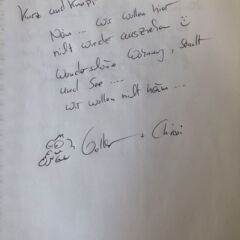 Kurz und knapp:
Nöm... Wir wollen hier
nicht wieder ausziehen ☺
Wunderschöne Wohnung, Stadt
und See....
wir wollen nicht heim...
+